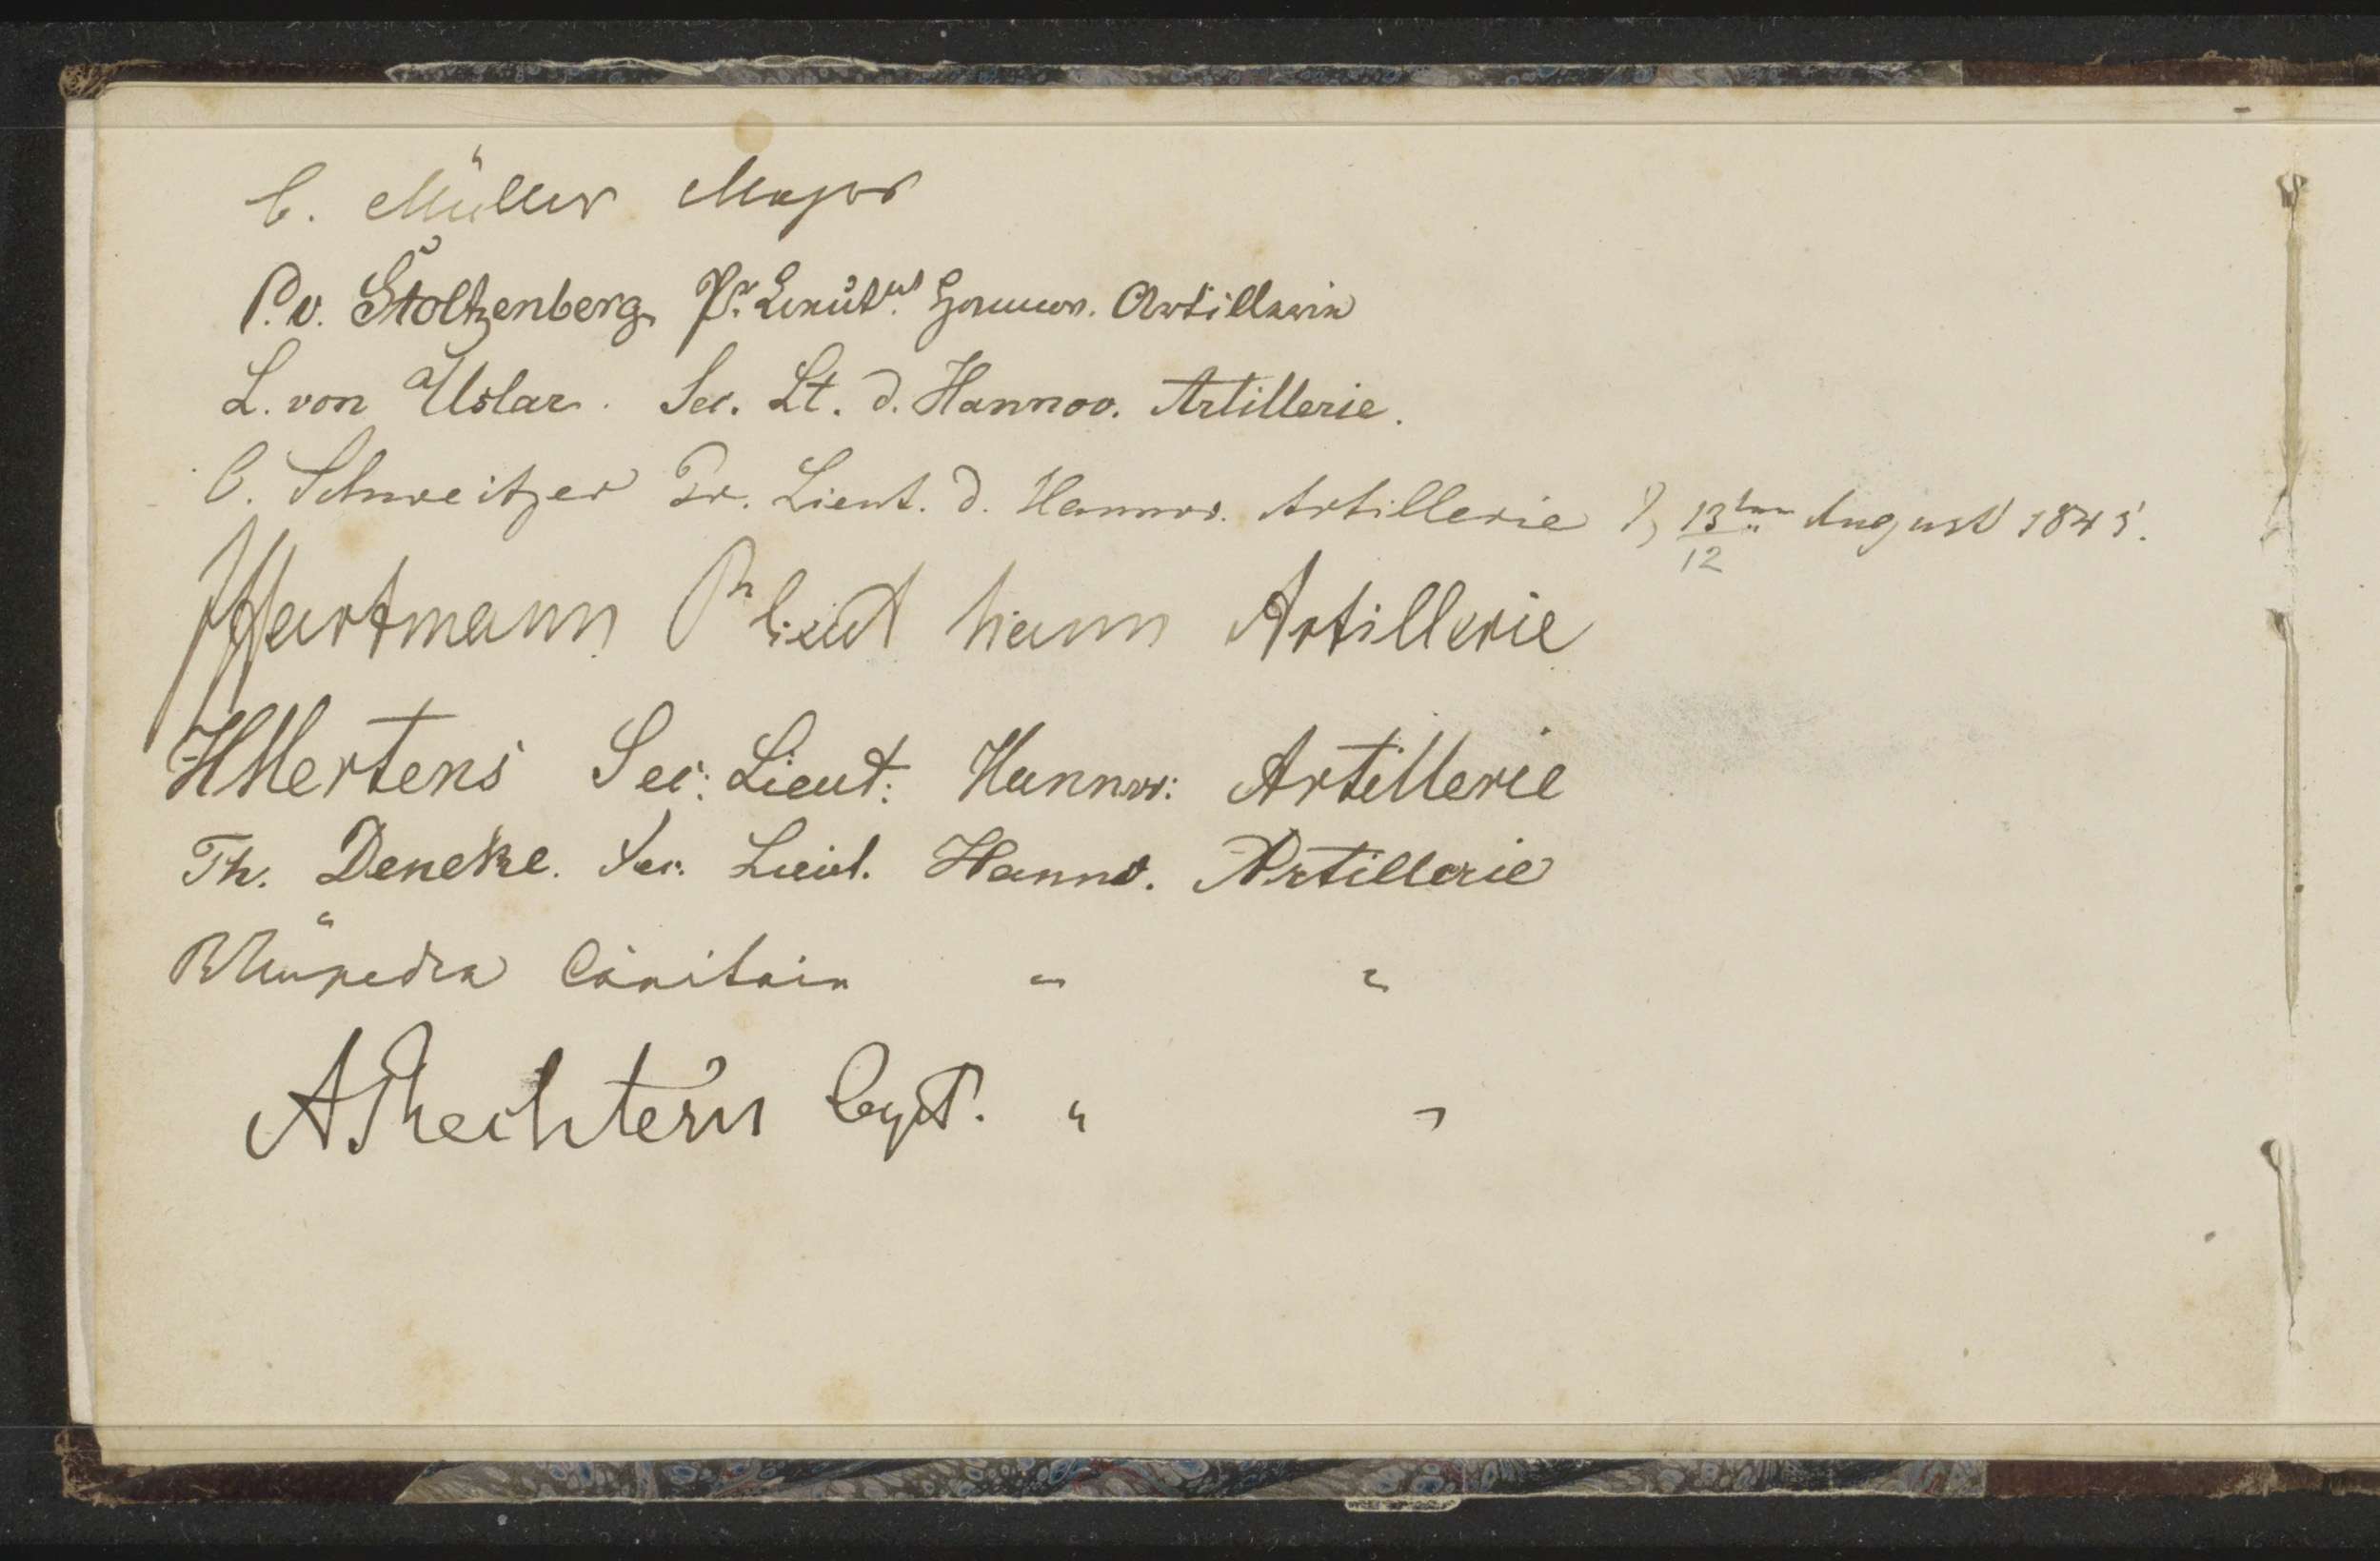 C. Müller Major
P. v. Stoltzenberg Pr. Lieutnt. Hannov. Artillerie
L. von Uslar. Sec. Lt. d. Hannov. Artillerie.
C. Schweitzer Pr. Lieut. d. Hannov. Artillerie 13ten August 1845.
12
Hartmann Pr Lieut hann Artillerie
HMertens Sec: Lieut: Hannov: Artillerie
Th. Deneke. Sec. Lieut. Hannov. Artillerie
Capitain " "
ARechtern Capt. " "